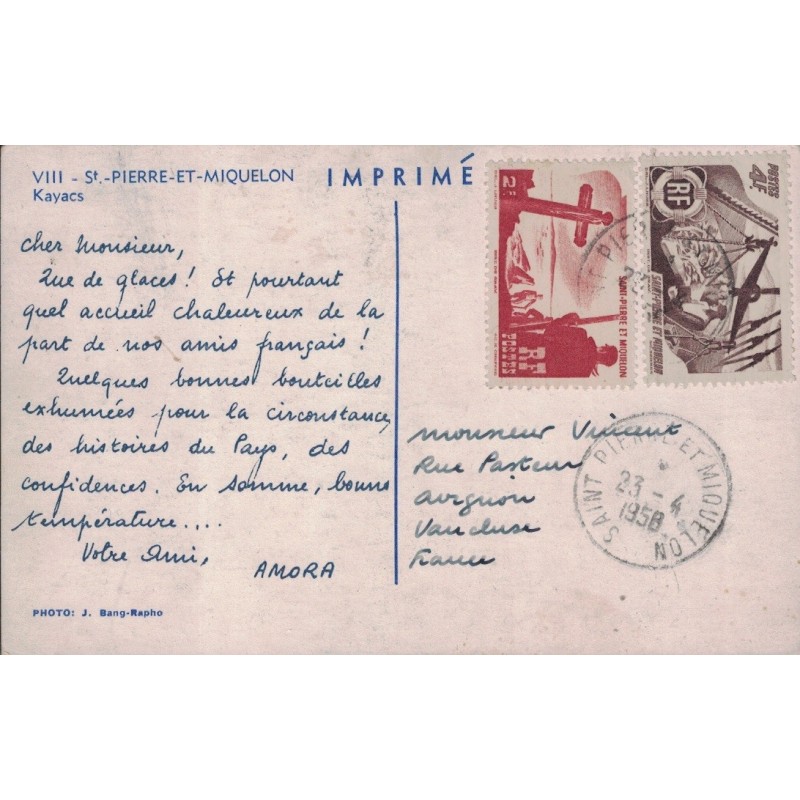 VIII - St.-PIERRE-ET-MIQUELON
Kayacs
IMPRIMÉ
Cher Monsieur,
Que de glaces ! Et pourtant
quel accueil chaleureux de la
part de nos amis français !
Quelques bonnes bouteilles
exhumées pour la circonstance,
des histoires du Pays, des
confidences. En somme, bonne
température....
Votre Ami,
AMORA
PHOTO: J. Bang-Rapho
2F
SAINT-PIERRE ET MIQUELON
RF
POSTES
POSTES
4F
RF
SAINT-PIERRE ET MIQUELON
Monsieur Vincent
Rue Pasteur
Avignon
Vaucluse
France
SAINT PIERRE ET MIQUELON
23-4
1958